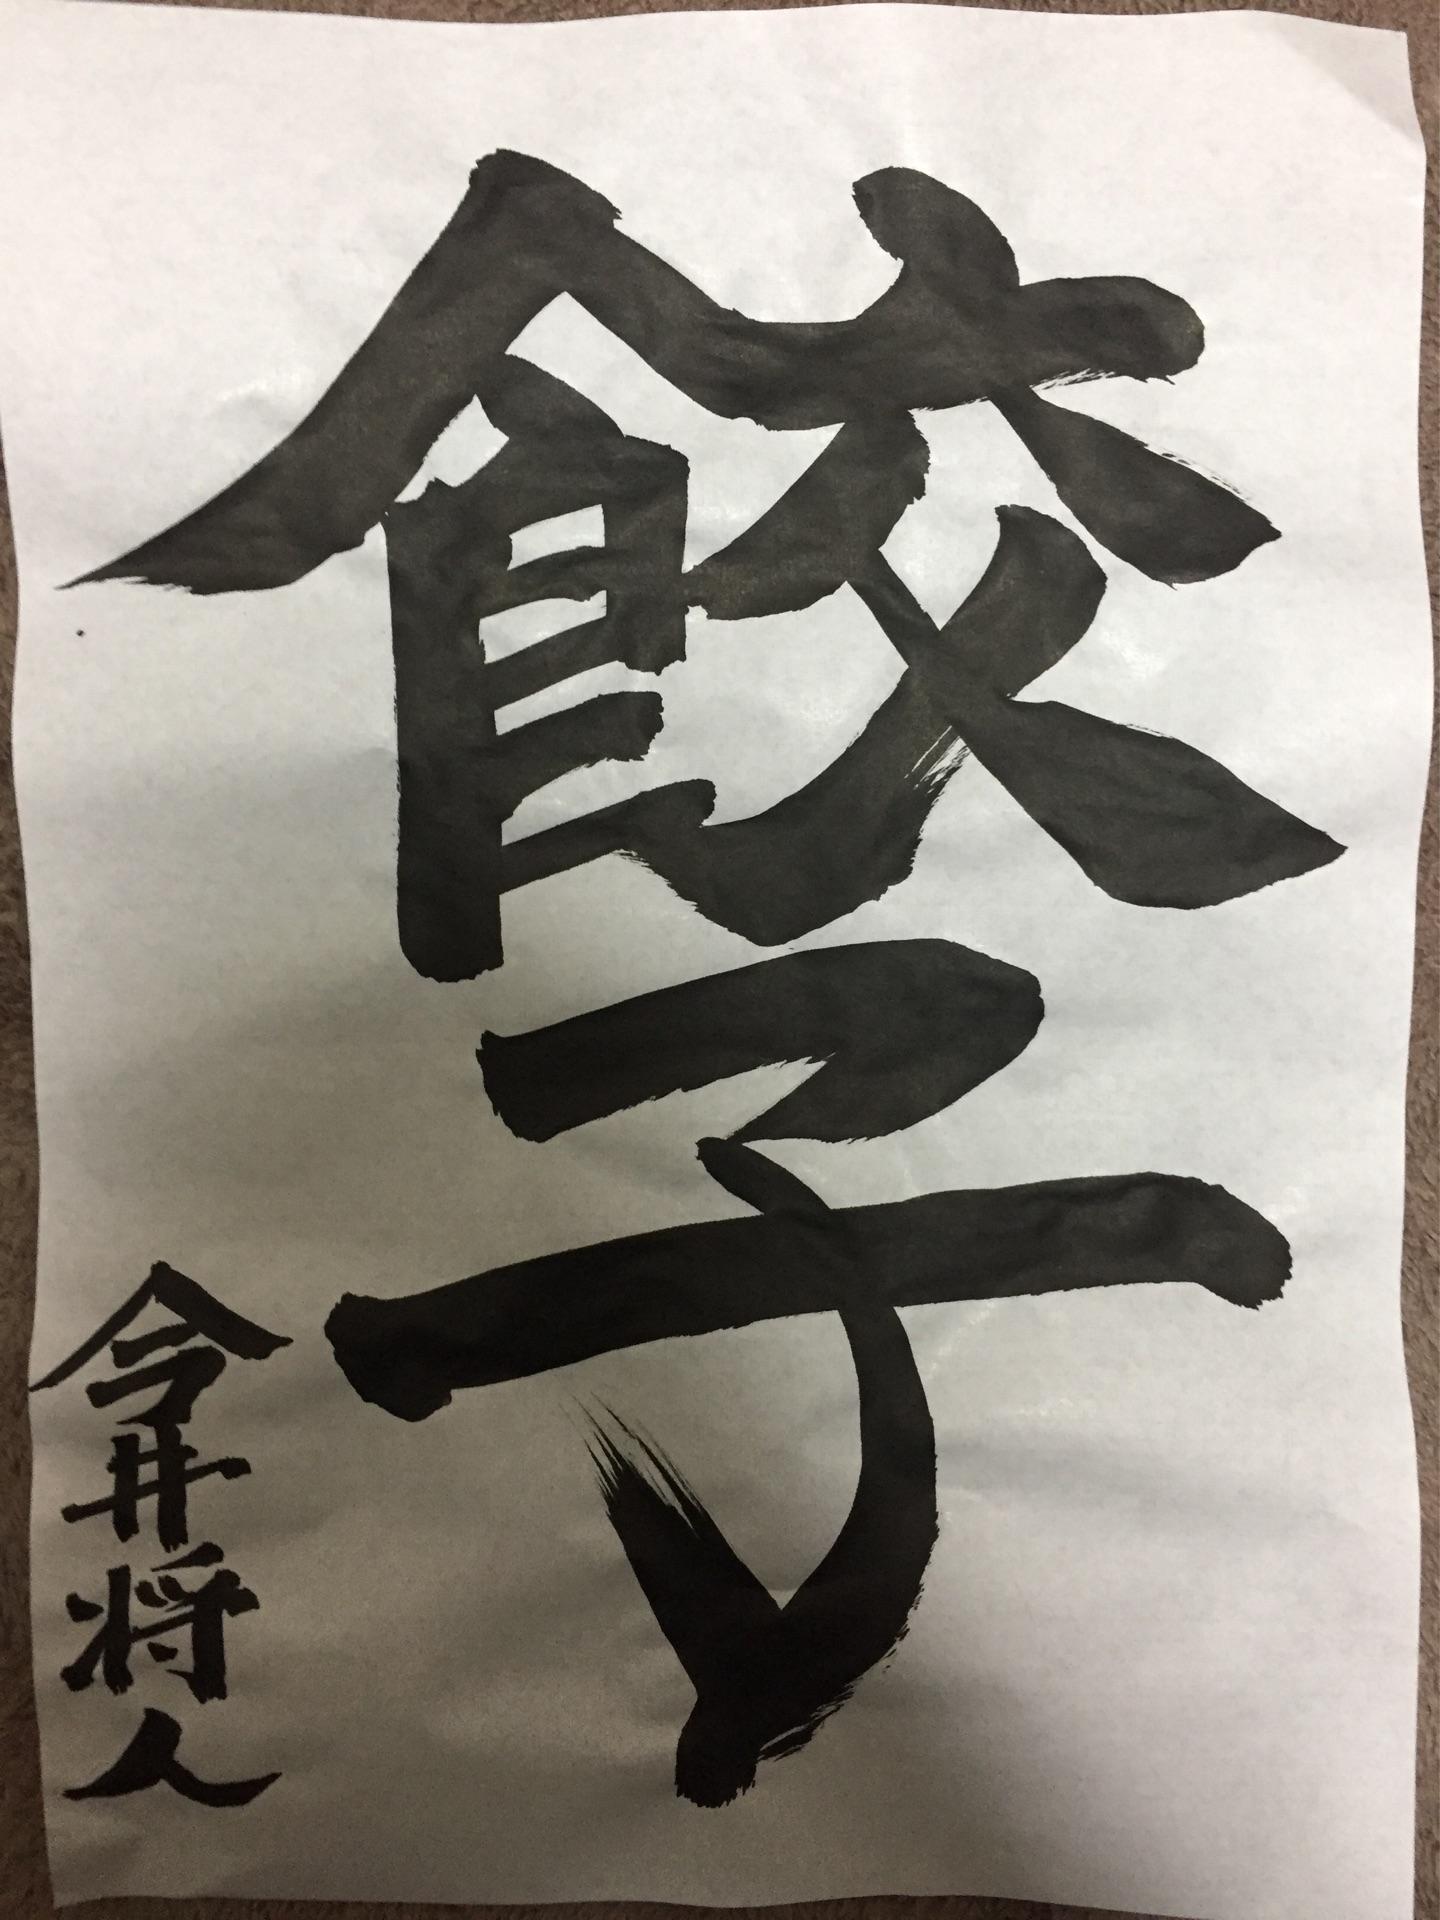 餃子
今井将人